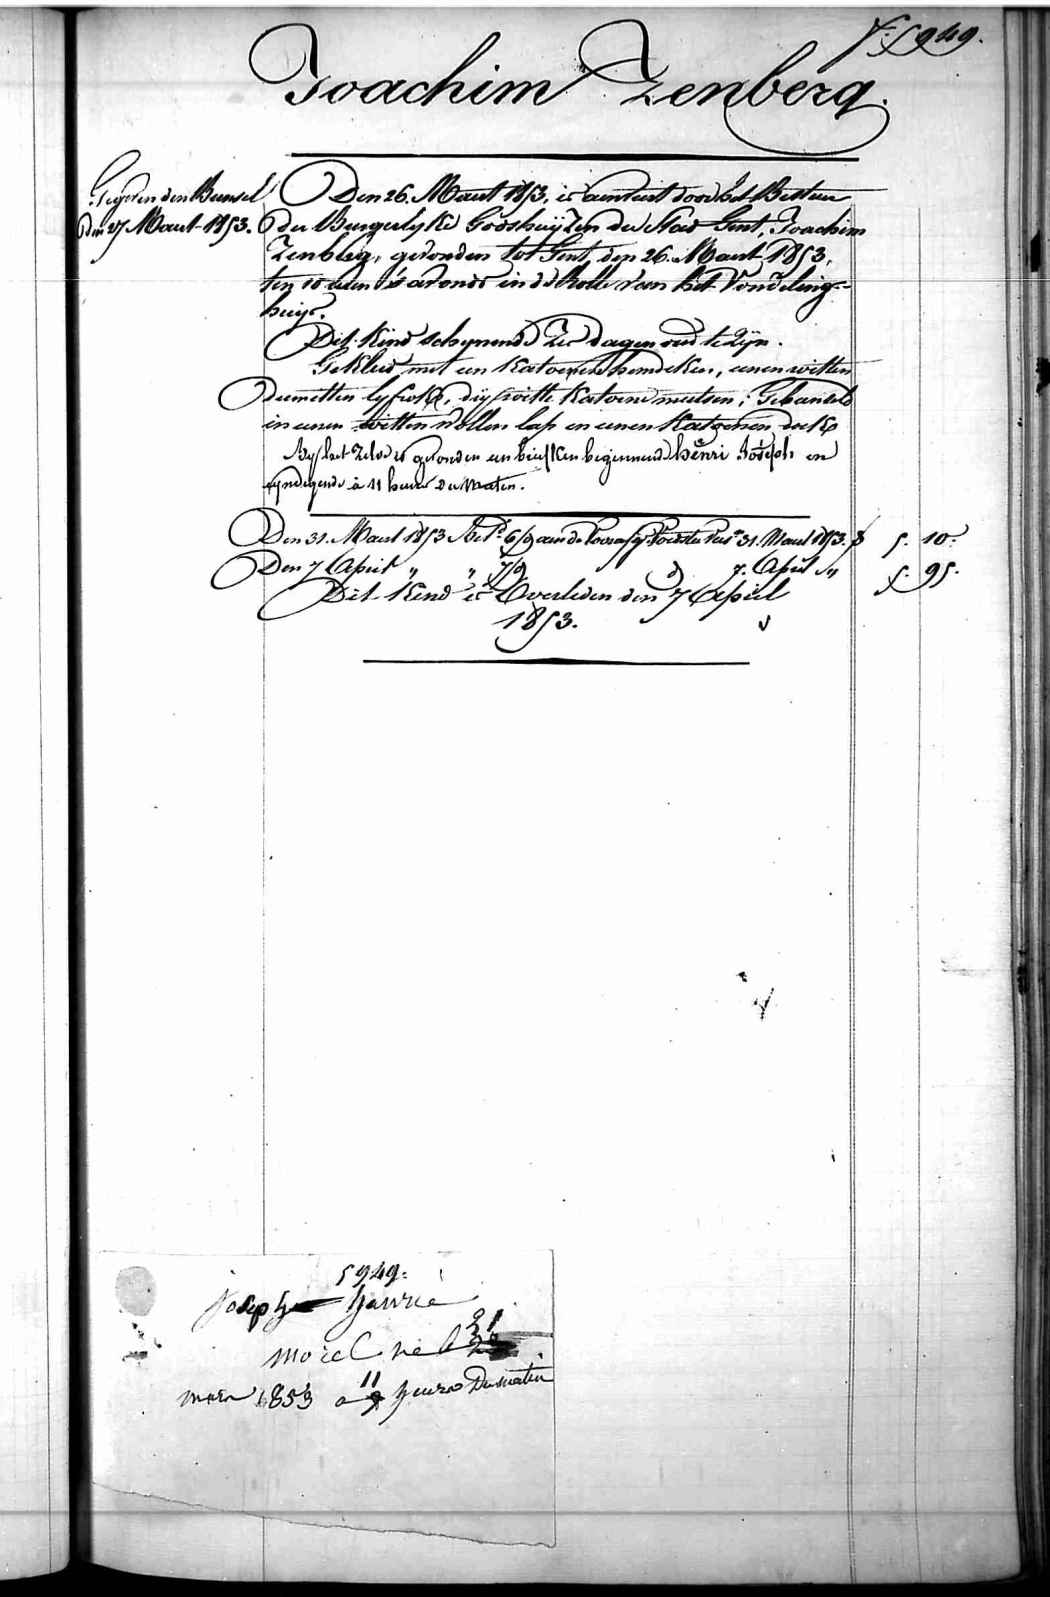 N.º 5949.
Joachim Zenberg.
Gegeven den Bunsel
den 27 Maart 1853.
Den 26. Maart 1853, is aenveirt door het Bestuur
der Burgerlyke Godshuijzen der Stad Gent, Joachim
Zenberg, gevonden tot Gent, den 26. Maart 1853,
ten 10 uren 's avonds in de Rolle van het Vondeling-
huijs.
Dit Kind schynende Zes dagen oud te Zijn.
Gekleed met een Katoenen hemdeken, eenen witten
demitten lyfrok, dry witte Katoene mutsen; Gebunseld
in eenen witten Wollen lap en eenen Katoenen doek
By het Zelve is gevonden een briefken beginnende hènri Joséph en
eyndigende à 11 heures du Matin.
Den 31. Maart 1853 6/9 aan de 31. Maart 1853. 5. 10.
Den 7 April " " 7/9 d.º 7. April " 5. 95.
Dit Kind is Overleden den 7 April
1853.
5949.
joseph henrie
morel né le 21
mars 1853 a 11 heures Du matin